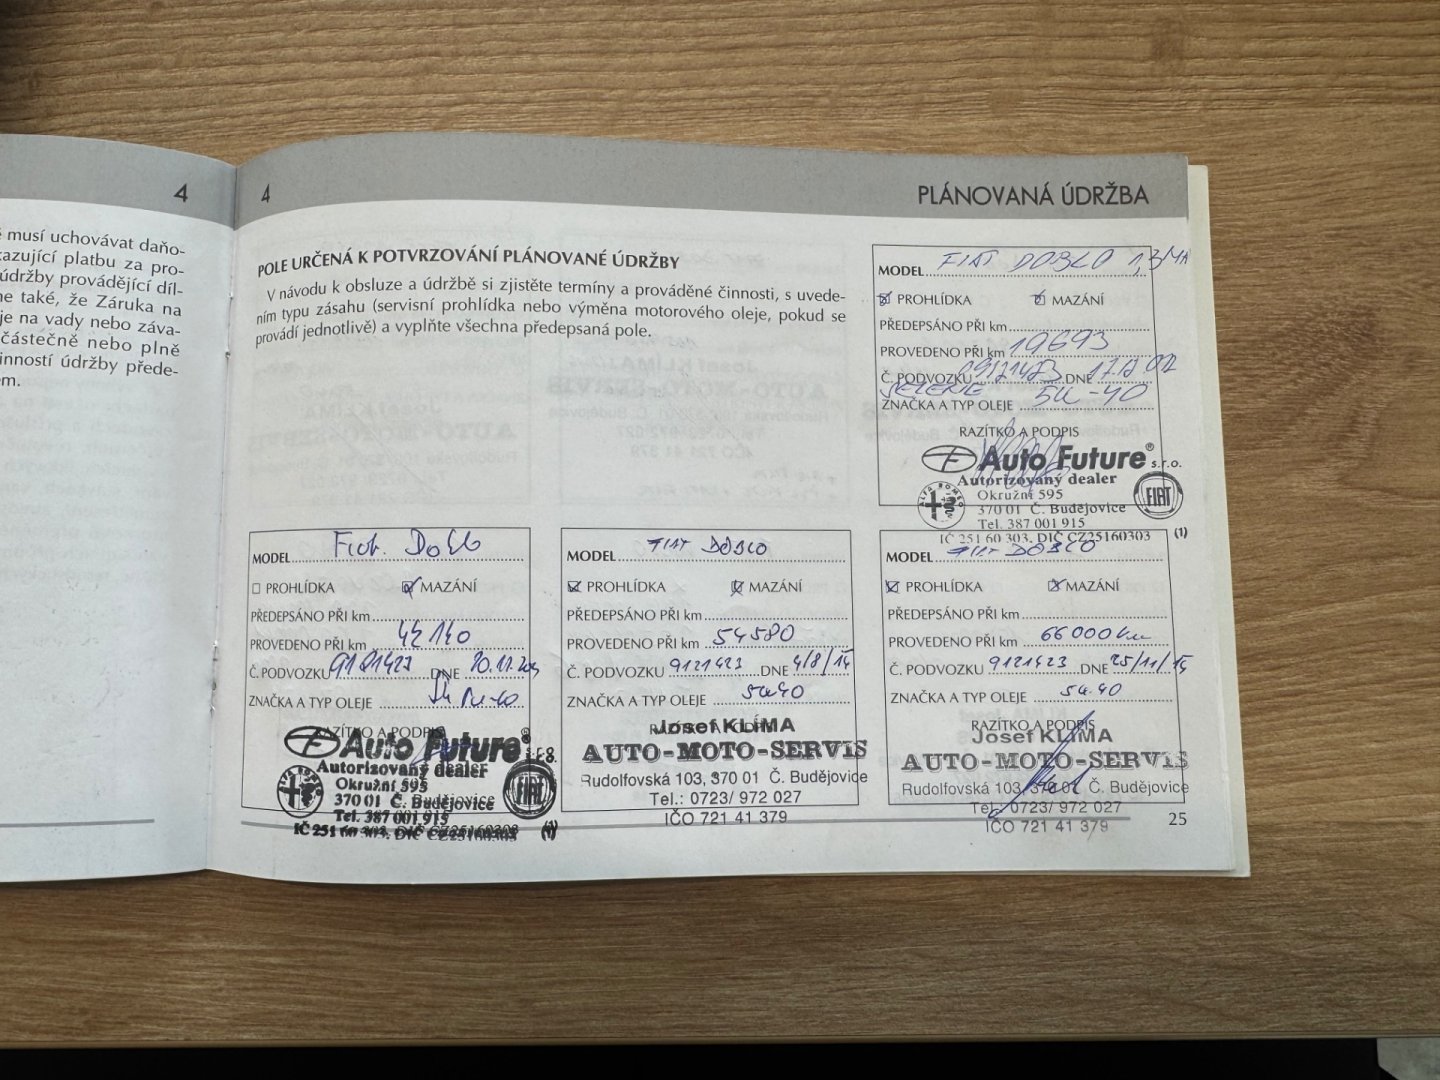 4
é musí uchovávat daňo-
kazující platbu za pro-
údržby provádějící díl-
me také, že Záruka na
je na vady nebo záva-
částečně nebo plně
inností údržby přede-
em.
4
PLÁNOVANÁ ÚDRŽBA
POLE URČENÁ K POTVRZOVÁNÍ PLÁNOVANÉ ÚDRŽBY
V návodu k obsluze a údržbě si zjistěte termíny a prováděné činnosti, s uvede-
ním typu zásahu (servisní prohlídka nebo výměna motorového oleje, pokud se
provádí jednotlivě) a vyplňte všechna předepsaná pole.
MODEL FIAT DOBLO
PROHLÍDKA MAZÁNÍ
PŘEDEPSÁNO PŘI km
PROVEDENO PŘI km 19693
Č. PODVOZKU 9121423 DNE
ZNAČKA A TYP OLEJE SELENIE 5W-40
RAZÍTKO A PODPIS
Auto Future® s.r.o.
Autorizovaný dealer
ALFA ROMEO
Okružní 595
FIAT
370 01 Č. Budějovice
Tel. 387 001 915
IČ 251 60 303, DIČ CZ25160303 (1)
MODEL Fiat Doblo
PROHLÍDKA MAZÁNÍ
PŘEDEPSÁNO PŘI km
PROVEDENO PŘI km 42 140
Č. PODVOZKU DNE
ZNAČKA A TYP OLEJE
RAZÍTKO A PODPIS
Auto Future® s.r.o.
Autorizovaný dealer
ALFA ROMEO
Okružní 595
FIAT
370 01 Č. Budějovice
Tel. 387 001 915
IČ 251 60 303, DIČ CZ25160303 (1)
MODEL FIAT DOBLO
PROHLÍDKA MAZÁNÍ
PŘEDEPSÁNO PŘI km
PROVEDENO PŘI km 54580
Č. PODVOZKU 9121423 DNE 4/8/14
ZNAČKA A TYP OLEJE 5W40
RAZÍTKO A PODPIS
Josef KLÍMA
AUTO-MOTO-SERVIS
Rudolfovská 103, 370 01 Č. Budějovice
Tel.: 0723/ 972 027
IČO 721 41 379
MODEL FIAT DOBLO
PROHLÍDKA MAZÁNÍ
PŘEDEPSÁNO PŘI km
PROVEDENO PŘI km 66000 km
Č. PODVOZKU 9121423 DNE 25/11/14
ZNAČKA A TYP OLEJE 5W40
RAZÍTKO A PODPIS
Josef KLÍMA
AUTO-MOTO-SERVIS
Rudolfovská 103, 370 01 Č. Budějovice
Tel.: 0723/ 972 027
IČO 721 41 379
25